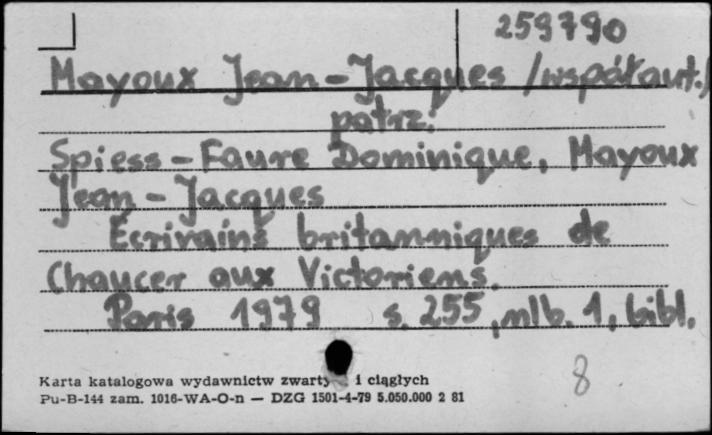 259790
Mayoux Jean-Jacques /współaut./
patrz:
Spiess-Faure Dominique, Mayoux
Jean-Jacques
Ecrivains britanniques de
Chaucer aux Victoriens.
Paris 1979 s. 255, nlb. 1, bibl.
8
Karta katalogowa wydawnictw i ciągłych
Pu-B-144 zam. 1016-WA-O-n — DZG 1501-4-79 5.050.000 2 81